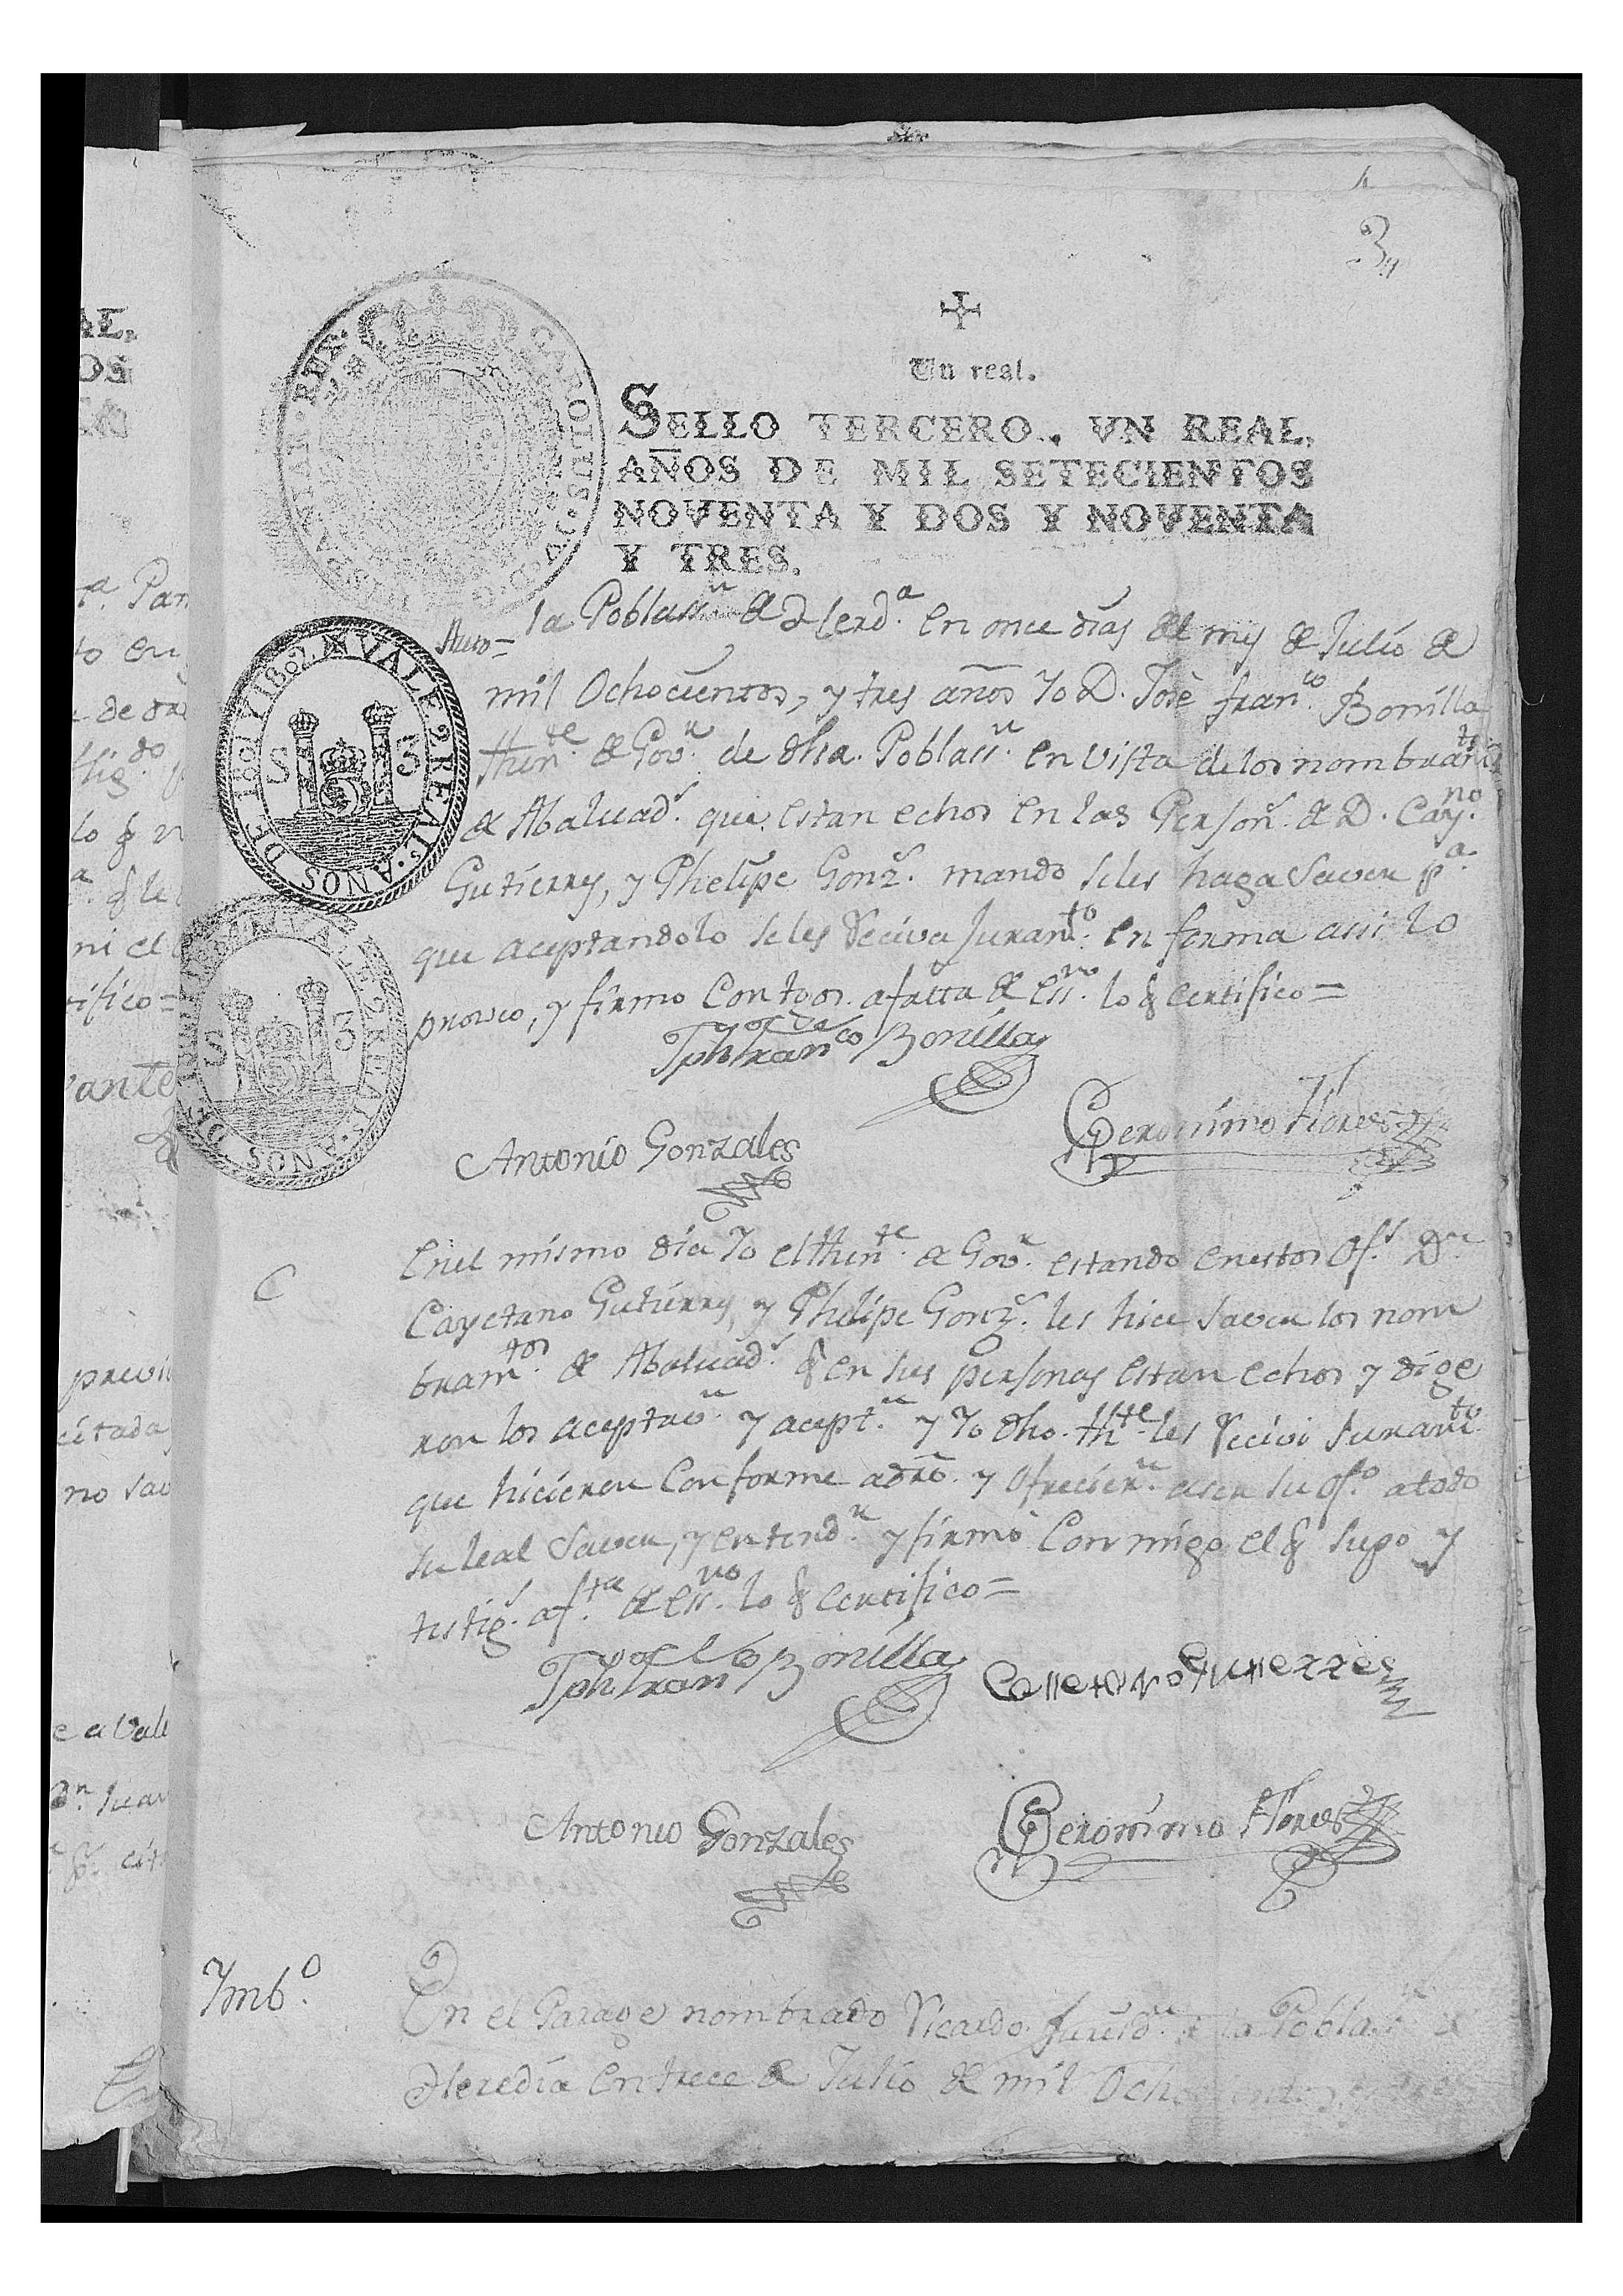 3
Un real.
SELLO TERCERO. VN REAL,
AÑOS DE MIL SETECIENTOS
NOVENTA Y DOS Y NOVENTA
Y TRES.
CAROLUS
VALE 2 REALs. AÑOS DE 1801 Y 1802.
S 3
S 3
Auto=
la Poblassn. de Herda. en once dias del mes de Julio de
mil Ochocientos, y tres años Yo D. José Franco. Bonilla
thente. de Govr. de dha. Poblassn. en vista de los nombramtos.
de Abaluads. que estan echos en las Persons. de D. Cayno.
Gutierres, y Phelipe Gonzs. mando seles haga saver pa.
que aceptandolo seles Reciva Juramto. en forma assi lo
proveo, y firmo con tgos. a falta de essno. lo q certifico=
Jph Franco de Bonilla
Antonio Gonzales
Geronimo Flores
C
En el mismo dia Yo el thente. de Govr. estando en estos Ofs. Dn.
Cayetano Gutierres, y Phelipe Gonzs. les hice saver los nom
bramtos. de Abaluads. q en sus personas estan echos y dige
ron los aceptavn. y aceptn. y Yo dho. thte. les Recivi Juramto.
que hicieron conforme a dro. y ofreciern. aser su ofo. a todo
su leal saver, y entendr. y firmó conmigo el q supo y
testigs. a fta. de essno. lo q certifico=
Jph Franco de Bonilla
Calletano Gutierres
Antonio Gonzales
Geronimo Flores
Ymbo.
En el Parage nombrado Ricardo Juridn. de la Poblassn. de
Heredia en trece de Julio de mil Ochocientos